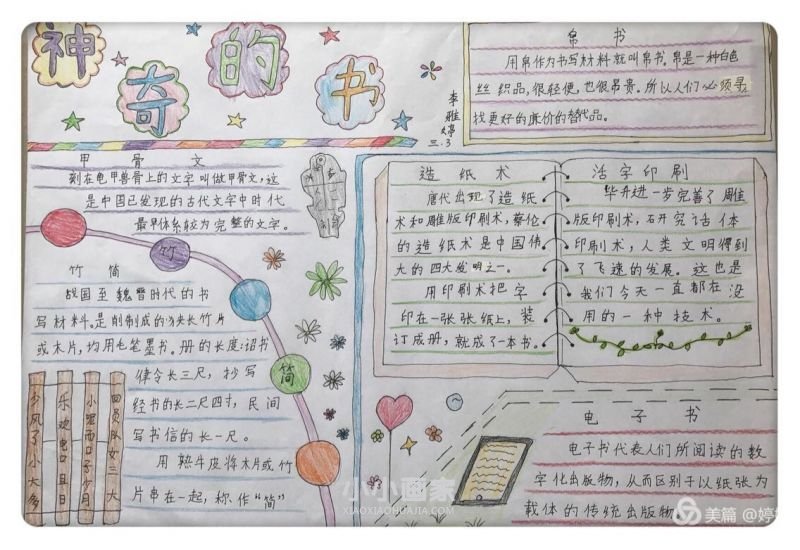 神奇的书
李雅婷
三.3
帛书
用帛作为书写材料就叫帛书。帛是一种白色
丝织品，很轻便，也很昂贵。所以人们必须寻
找更好的廉价的替代品。
甲骨文
刻在龟甲兽骨上的文字叫做甲骨文，这
是中国已发现的古代文字中时代
最早体系较为完整的文字。
竹简
战国至魏晋时代的书
写材料。是削制成的狭长竹片
或木片，均用毛笔墨书。册的长度：诏书
律令长三尺，抄写
经书的长二尺四寸，民间
写书信的长一尺。
用熟牛皮将木片或竹
片串在一起，称作“简”
竹
简
造纸术
唐代出现了造纸
术和雕版印刷术，蔡伦
的造纸术是中国伟
大的四大发明之一。
用印刷术把字
印在一张张纸上，装
订成册，就成了一本书。
活字印刷
毕升进一步完善了雕
版印刷术，研究活体
印刷术，人类文明得到
了飞速的发展。这也是
我们今天一直都在没
用的一种技术。
电子书
电子书代表人们所阅读的数
字化出版物，从而区别于以纸张为
载体的传统出版物
小小画家
XIAOXIAOHUAJIA.COM
美篇 @婷